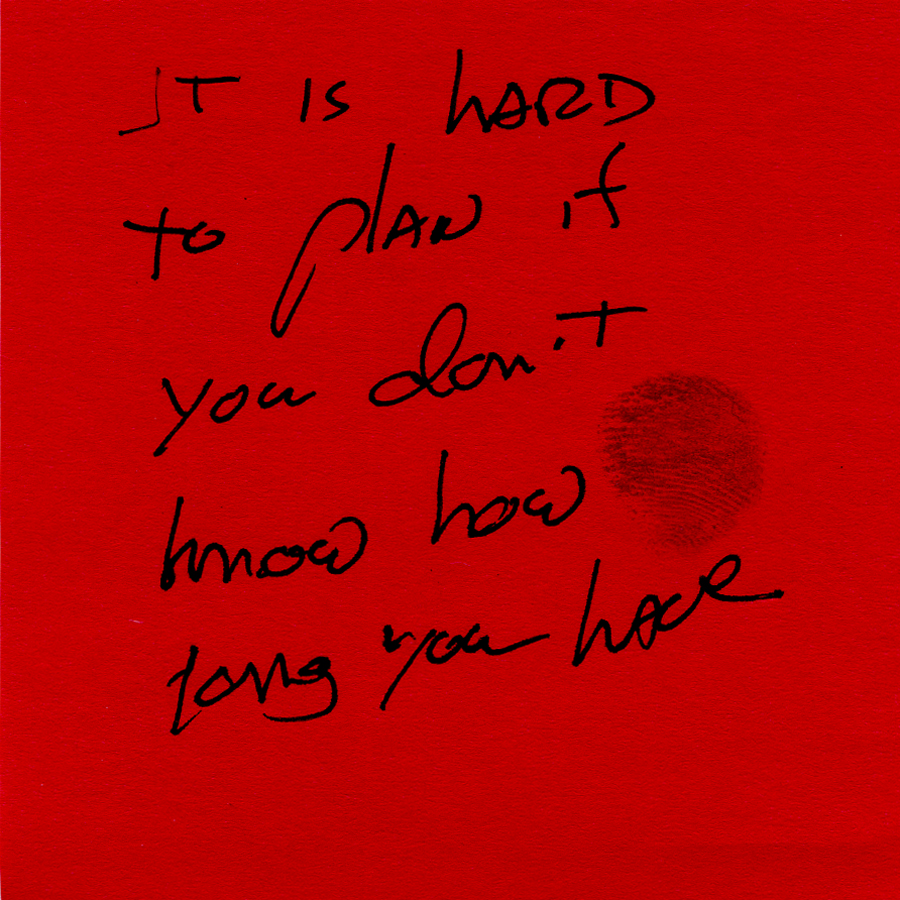 IT IS HARD
to plAN if
you don't
know how
long you have